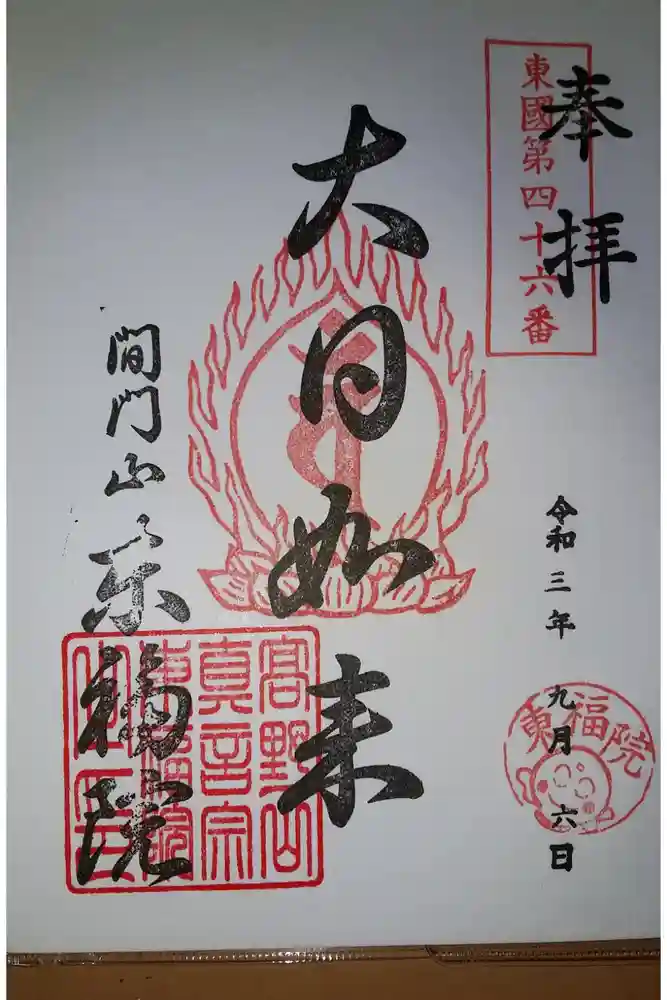 奉拝
東國第四十六番
令和三年九月六日
東福院
大日如来
間門山東福院
高野山
真言宗
東福院